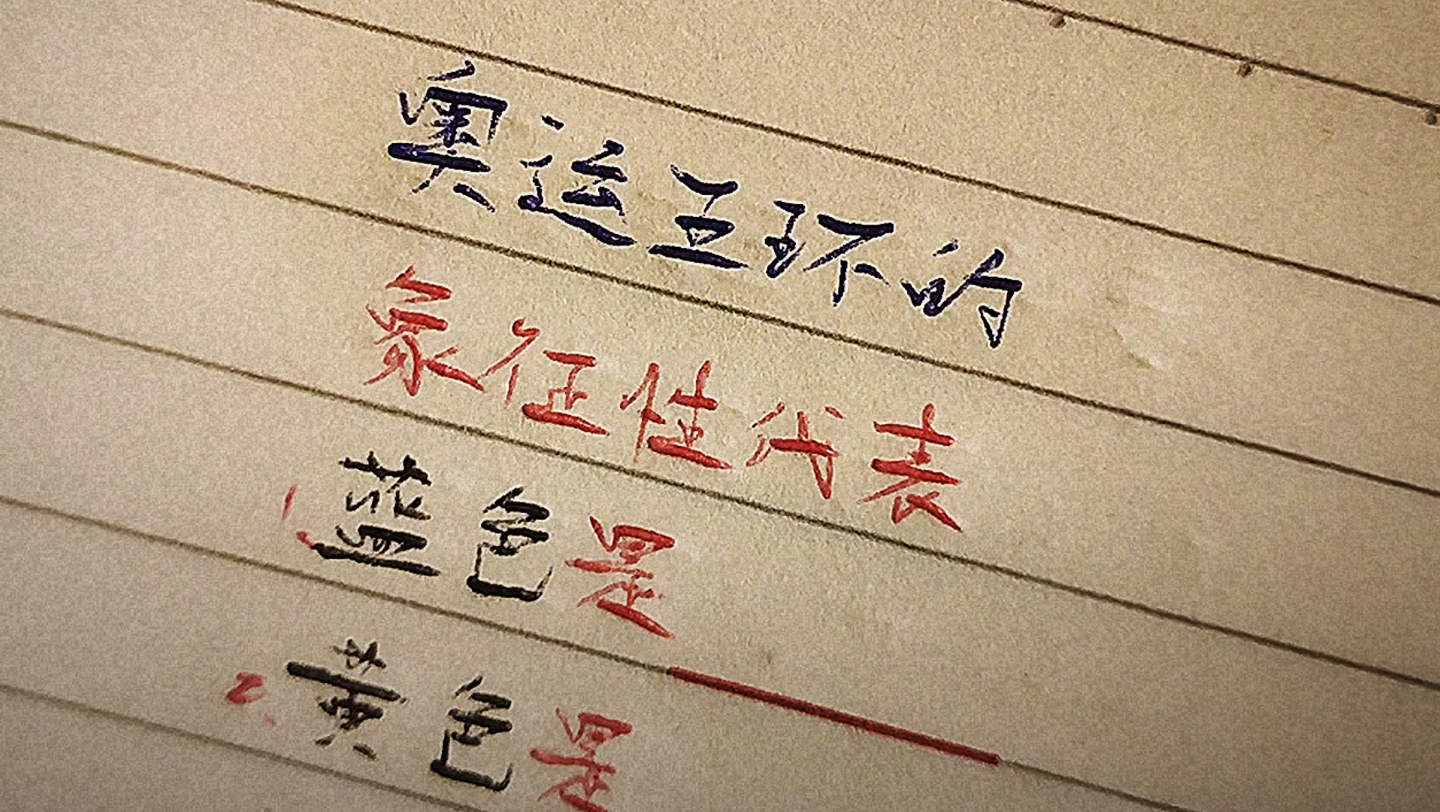 奥运五环的
象征性代表
1.蓝色是
2.黄色是